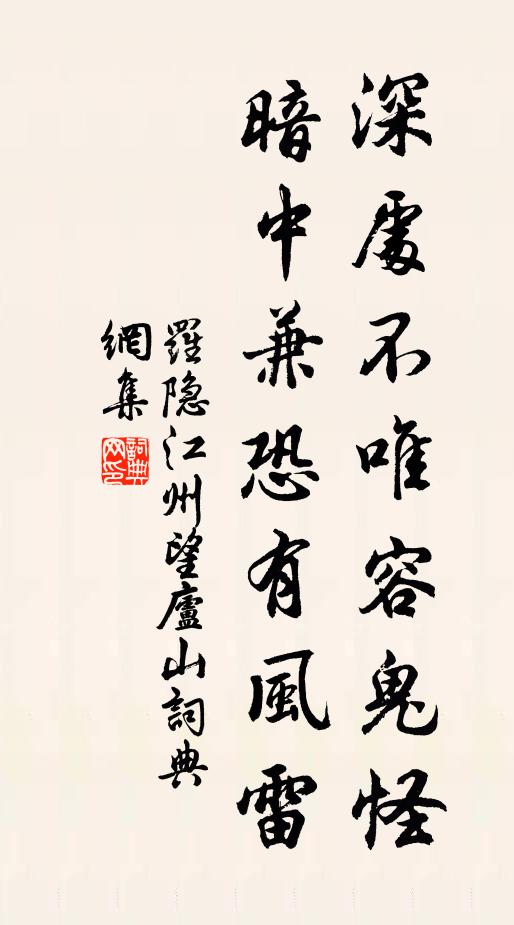 深處不唯容鬼怪
暗中兼恐有風雷
羅隐江州望廬山詞典
網集
詞典网印